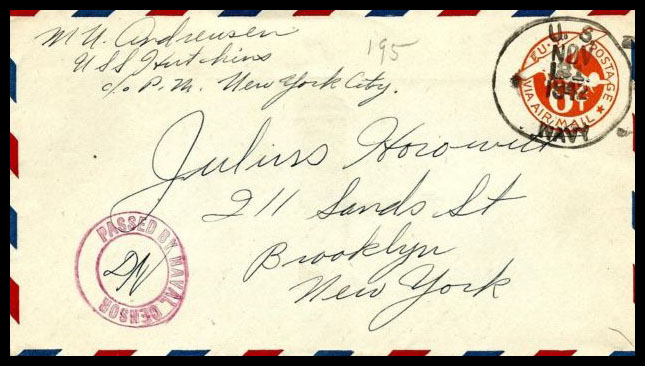 M U. Andreasen
USS Hutchins
c/o P.M. New York City.
195
U. S.
NOV
1942
NAVY
U.S. POSTAGE
6¢
VIA AIR MAIL
Julius Horowitz
211 Sands St
Brooklyn
New York
PASSED BY NAVAL CENSOR